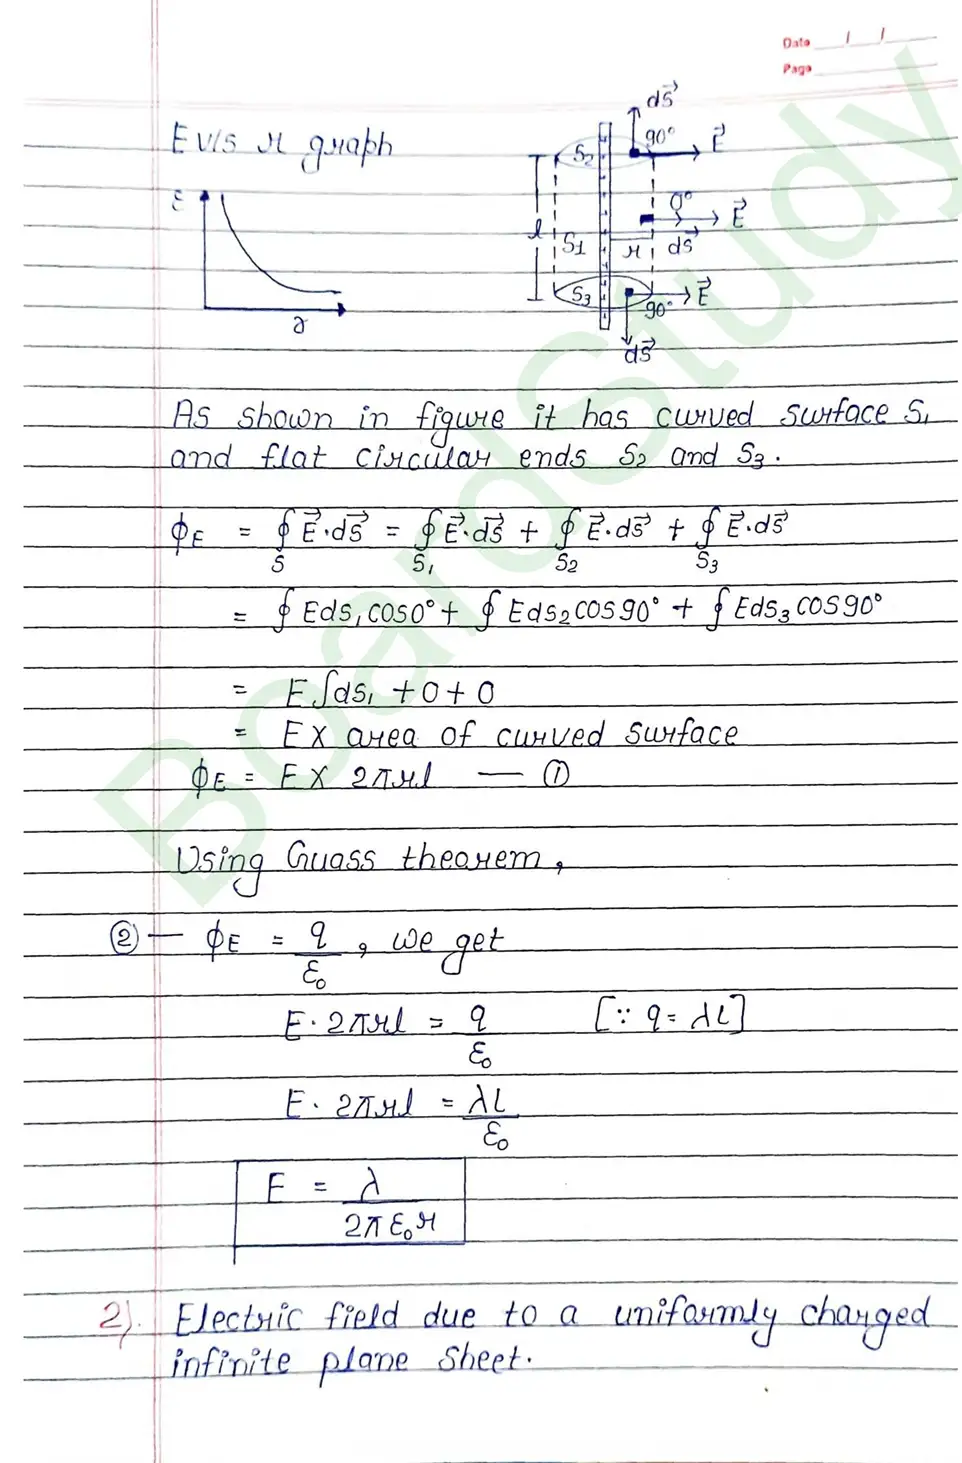 Date / /
Page
E v/s r graph
E
r
dS⃗
90°
E⃗
S2
0°
E⃗
l
S1
r
dS⃗
S3
E⃗
90°
dS⃗
As shown in figure it has curved surface S₁
and flat circular ends S₂ and S₃.
ϕE = ∮S E⃗·dS⃗ = ∮S₁ E⃗·dS⃗ + ∮S₂ E⃗·dS⃗ + ∮S₃ E⃗·dS⃗
= ∮ Eds₁cos0° + ∮ Eds₂cos90° + ∮ Eds₃cos90°
= E∫ds₁ + 0 + 0
= E X area of curved surface
ϕE = E X 2πrl — ①
Using Guass theorem,
② — ϕE = q/ε₀ , we get
E · 2πrl = q/ε₀ [∵ q = λL]
E · 2πrl = λL/ε₀
E = λ/2πε₀r
2). Electric field due to a uniformly charged
infinite plane sheet.
BoardStudy